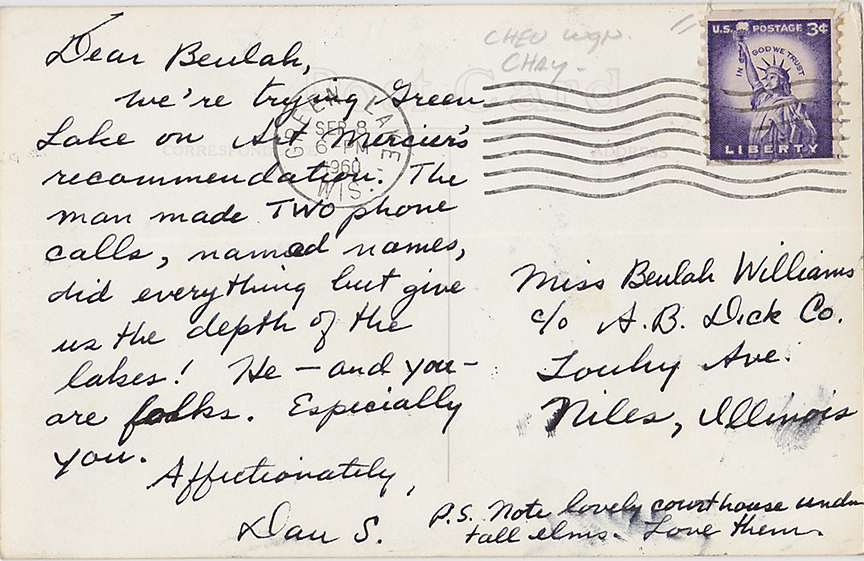 Dear Beulah,
we're trying Green
Lake on Art Mercier's
recommendation. The
man made TWO phone
calls, named names,
did everything but give
us the depth of the
lakes! He — and you —
are folks. Especially
you.
Affectionately,
Dan S.
POST CARD
CORRESPONDENCE
ADDRESS
CHEV wgn.
CHAY-
GREEN LAKE
SEP 8
6 PM
1960
WIS.
U.S. POSTAGE 3¢
IN GOD WE TRUST
LIBERTY
Miss Beulah Williams
c/o A.B. Dick Co.
Touhy Ave.
Niles, Illinois
P.S. Note lovely courthouse under
tall elms. Love them.